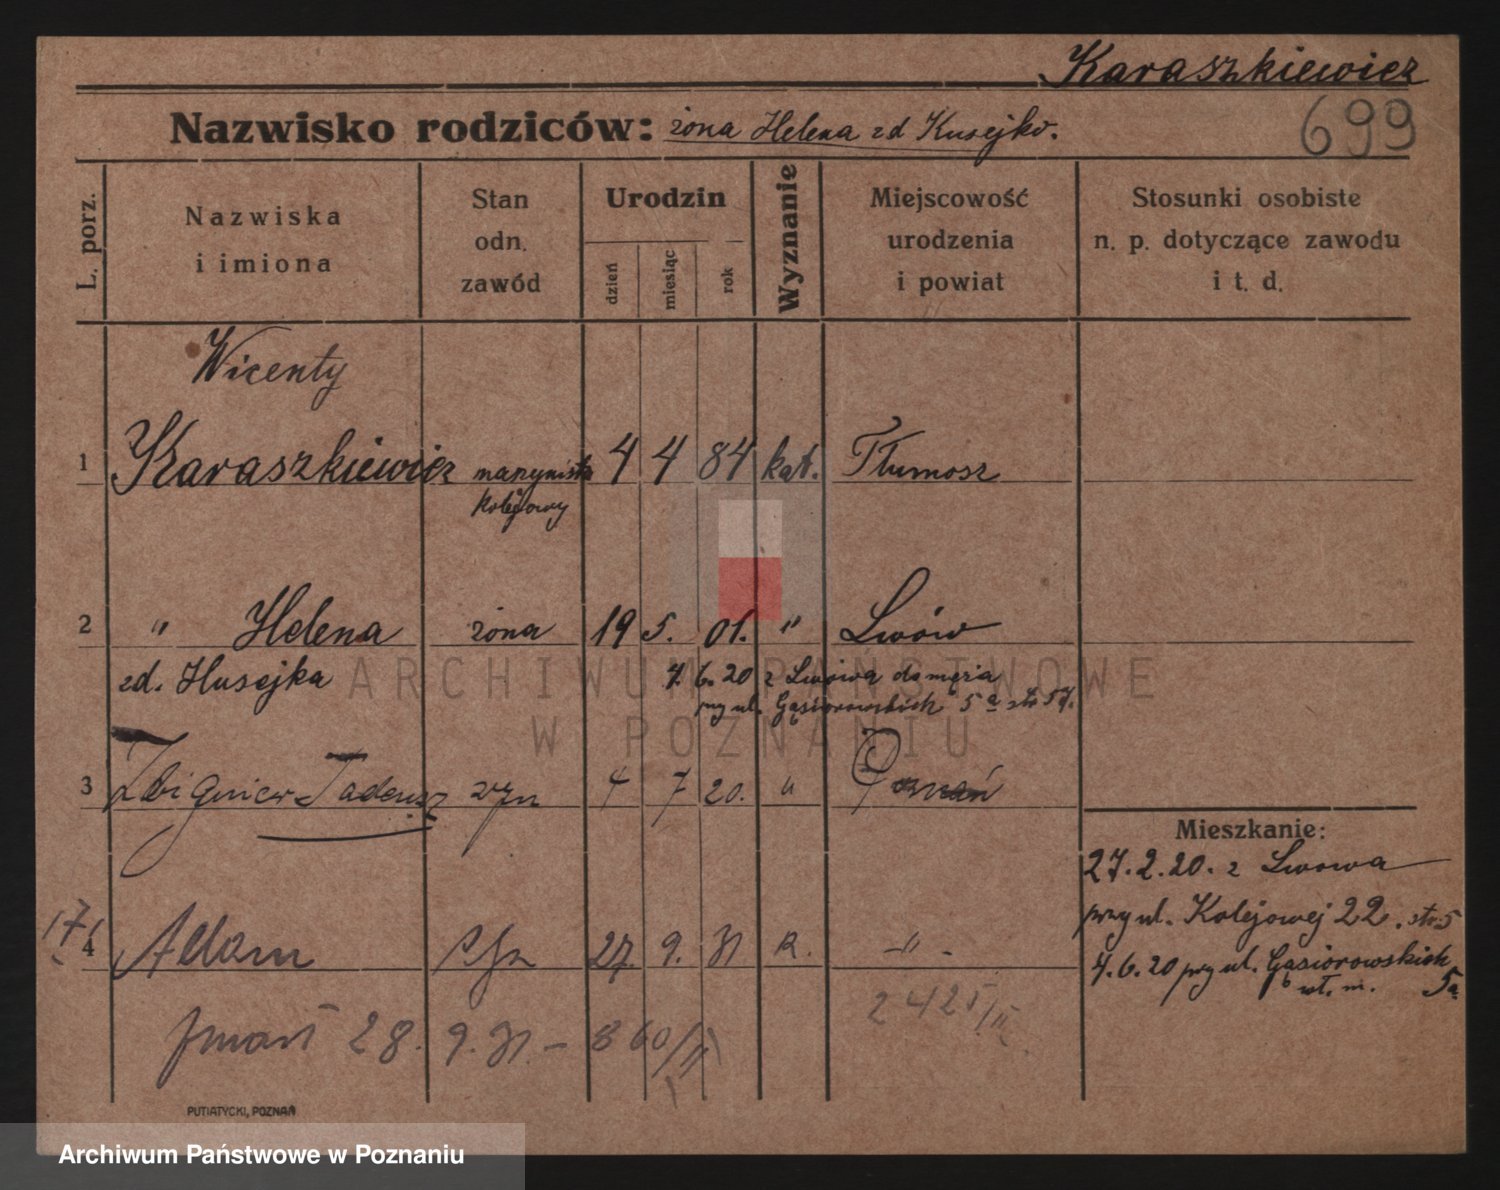 Karaszkiewicz
699
Nazwisko rodziców: żona Helena zd Kusejko.
L. porz.
Nazwiska i imiona
Stan odn. zawód
Urodzin
dzień miesiąc rok
Wyznanie
Miejscowość urodzenia i powiat
Stosunki osobiste n. p. dotyczące zawodu i t. d.
Wicenty
1 Karaszkiewicz maszynista 4 4 84 kat. Tłumosz
kolejowy
2 " Helena żona 19 5. 01. " Lwów
zd. Husejka 4. 6. 20 z Lwowa do męża
przy ul. Gąsiorowskich 5a str 57.
3 Zbigniew Tadeusz syn 4 7 20. " Poznań
Mieszkanie:
27.2.20. z Lwowa
przy ul. Kolejowej 22. str 5
4.6.20 przy ul. Gąsiorowskich 5a
wł. m.
171
4 Adam syn 27. 9. 31 R. -"-
zmarł 28. 9. 31. - 860/II
2425/II
PUTIATYCKI, POZNAŃ
ARCHIWUM PAŃSTWOWE
W POZNANIU
Archiwum Państwowe w Poznaniu